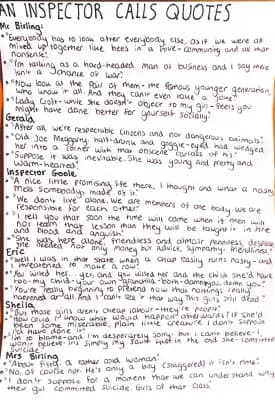 AN INSPECTOR CALLS QUOTES
Mr Birling:
"Everybody has to look after everybody else, as if we were all
mixed up together like bees in a hive - community and all that
nonsense.
"I'm talking as a hard-headed man of business and I say there
isn't a chance of war.
"Now look at the pair of them - the famous younger generation
who know it all. And they can't even take a joke
"Lady Croft - while she doesn't object to my girl - feels you
might have done better for yourself socially"
Gerald
"After all, we're respectable citizens and not dangerous animals".
"Old Joe Meggarty, half-drunk and goggle-eyed had wedged
her into a corner with that obscene carcass of his"
"Suppose it was inevitable. She was young and pretty and
warm-hearted"
Inspector Goole
"A nice little promising life there, I thought and what a nasty
mess somebody's made of it"
"We don't live alone. We are members of one body. We are
responsible for each other"
"I tell you that soon the time will come when if men will
not learn that lesson then they will be taught it in fire
and blood and anguish"
"She was here alone, friendless and almost penniless, desperate
she needed not only money but advice, sympathy, friendliness"
Eric
"Well I was in that state when a chap easily turns nasty - and
I threatened to make a row"
"You killed her - yes, and you killed her and the child she'd have
too - my child - your own grandchild - both - damn you, damn you"
"You're really beginning to pretend now that nothing's really
happened at all. And I can't see it that way. This girl's still dead"
Sheila
"But these girls aren't cheap labour - they're people"
"How could I know what would happen afterwards? If she'd
been some miserable, plain little creature I don't suppose
I'd have done it"
"I'm to blame - and I'm desperately sorry - but I can't believe - I
won't believe it's simply my fault that in the end she - committed
suicide"
Mrs Birling
"About fifty, a rather cold woman"
"No, of course not. He's only a boy (staggered) it isn't true"
"I don't suppose for a moment that we can understand why
the girl committed suicide. Girls of that class"